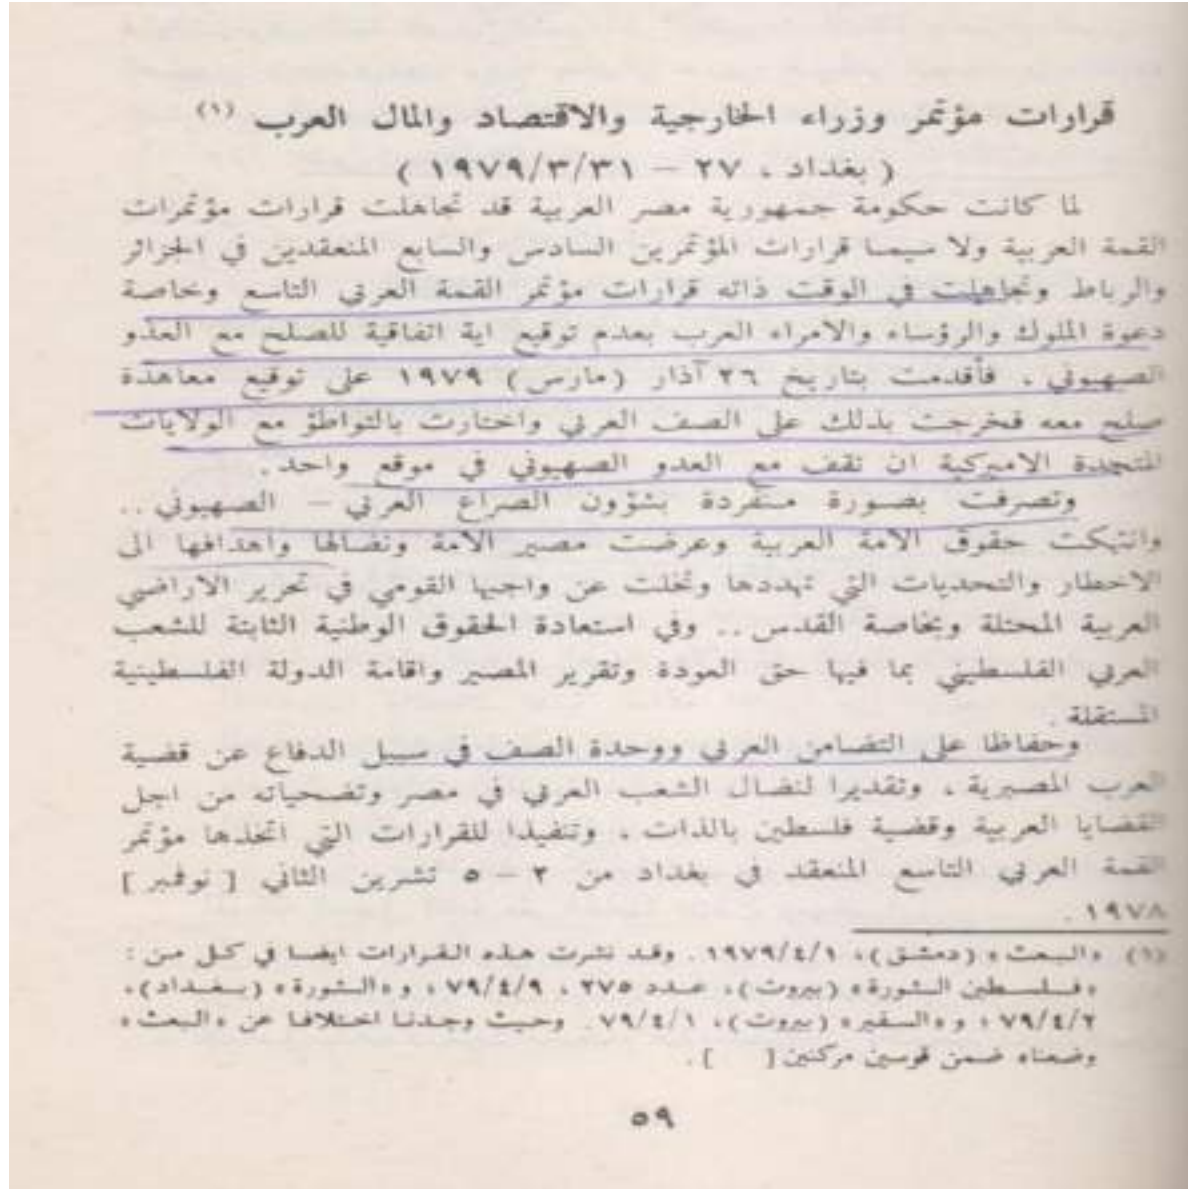 قرارات مؤتمر وزراء الخارجية والاقتصاد والمال العرب (١)
( بغداد ، ٢٧ – ١٩٧٩/٣/٣١ )
لما كانت حكومة جمهورية مصر العربية قد تجاهلت قرارات مؤتمرات
القمة العربية ولا سيما قرارات المؤتمرين السادس والسابع المنعقدين في الجزائر
والرباط وتجاهلت في الوقت ذاته قرارات مؤتمر القمة العربي التاسع وخاصة
دعوة الملوك والرؤساء والامراء العرب بعدم توقيع اية اتفاقية للصلح مع العدو
الصهيوني ، فأقدمت بتاريخ ٢٦ آذار (مارس) ١٩٧٩ على توقيع معاهدة
صلح معه فخرجت بذلك على الصف العربي واختارت بالتواطؤ مع الولايات
المتحدة الاميركية ان تقف مع العدو الصهيوني في موقع واحد .
وتصرفت بصورة منفردة بشؤون الصراع العربي – الصهيوني ..
وانتهكت حقوق الامة العربية وعرضت مصير الامة ونضالها واهدافها الى
الاخطار والتحديات التي تهددها وتخلت عن واجبها القومي في تحرير الاراضي
العربية المحتلة وبخاصة القدس .. وفي استعادة الحقوق الوطنية الثابتة للشعب
العربي الفلسطيني بما فيها حق العودة وتقرير المصير واقامة الدولة الفلسطينية
المستقلة .
وحفاظا على التضامن العربي ووحدة الصف في سبيل الدفاع عن قضية
العرب المصيرية ، وتقديرا لنضال الشعب العربي في مصر وتضحياته من اجل
القضايا العربية وقضية فلسطين بالذات ، وتنفيذا للقرارات التي اتخذها مؤتمر
القمة العربي التاسع المنعقد في بغداد من ٢ – ٥ تشرين الثاني [ نوفمبر ]
١٩٧٨ .
(١) «البعث» (دمشق)، ١٩٧٩/٤/١ . وقد نشرت هذه القرارات ايضا في كل من :
«فلسطين الثورة» (بيروت)، عدد ٢٧٥ ، ٧٩/٤/٩ ، و«الثورة» (بغداد)،
٧٩/٤/٢ ؛ و«السفير» (بيروت)، ٧٩/٤/١ . وحيث وجدنا اختلافا عن «البعث»
وضعناه ضمن قوسين مركنين [ ] .
٥٩